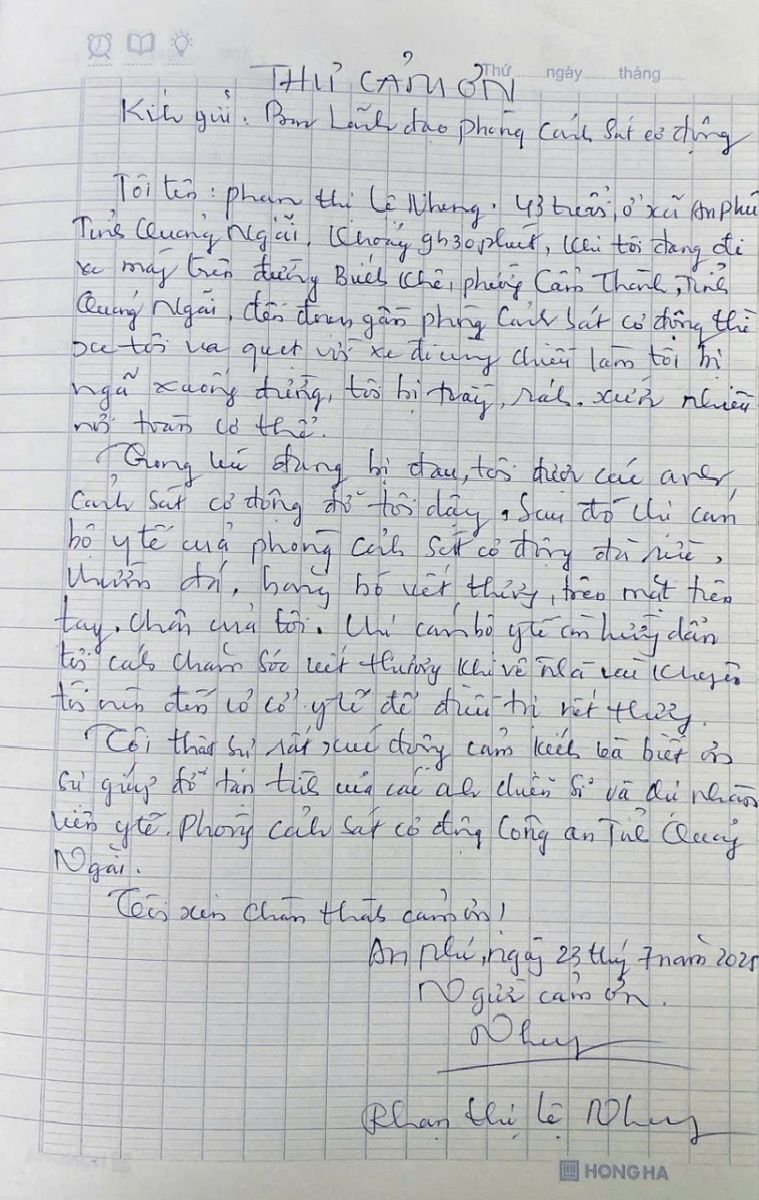 Thứ ........ ngày ........ tháng ........
THƯ CẢM ƠN
Kính gửi: Ban Lãnh đạo phòng Cảnh Sát cơ động
Tôi tên: phan thị Lệ Nhung. 43 tuổi, ở xã An phú
Tỉnh Quảng Ngãi, Khoảng 9h30 phút, khi tôi đang đi
xe máy trên đường Bích Khê, phường Cẩm Thành, Tỉnh
Quảng Ngãi, đến đoạn gần phòng Cảnh Sát cơ động thì
xe tôi va quẹt với xe đi cùng chiều làm tôi bị
ngã xuống đường, tôi bị trầy, rách, xước nhiều
nơi toàn cơ thể.
Trong lúc đang bị đau, tôi được các anh
Cảnh Sát cơ động đỡ tôi dậy. Sau đó chị cán
bộ y tế của phòng cảnh sát cơ động đã rửa,
chườm đá, băng bó vết thương, trên mặt trên
tay, chân của tôi. Chị cán bộ y tế còn hướng dẫn
tôi cách chăm sóc vết thương khi về nhà và khuyên
tôi nên đến cơ sở y tế để điều trị vết thương.
Tôi thật sự rất xúc động cảm kích và biết ơn
sự giúp đỡ tận tình của các anh chiến sĩ và chị nhân
viên y tế. Phòng cảnh sát cơ động Công an Tỉnh Quảng
Ngãi.
Tôi xin chân thành cảm ơn!
An phú, ngày 23 tháng 7 năm 2025
Người cảm ơn.
Nhung
Phan thị Lệ Nhung
HONG HA